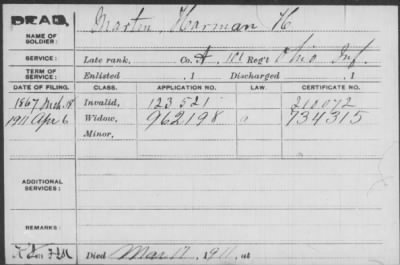 DEAD.
NAME OF SOLDIER: Martin, Harman H
SERVICE: Late rank, Co. A, 101 Reg't Ohio Inf.
TERM OF SERVICE: Enlisted , 1 Discharged , 1
DATE OF FILING. CLASS. APPLICATION NO. LAW. CERTIFICATE NO.
1867 Mch. 18 Invalid, 123521 210072
1911 Apr 6 Widow, 962198 a 734315
Minor,
ADDITIONAL SERVICES:
REMARKS:
Died Mar 17, 1911, at